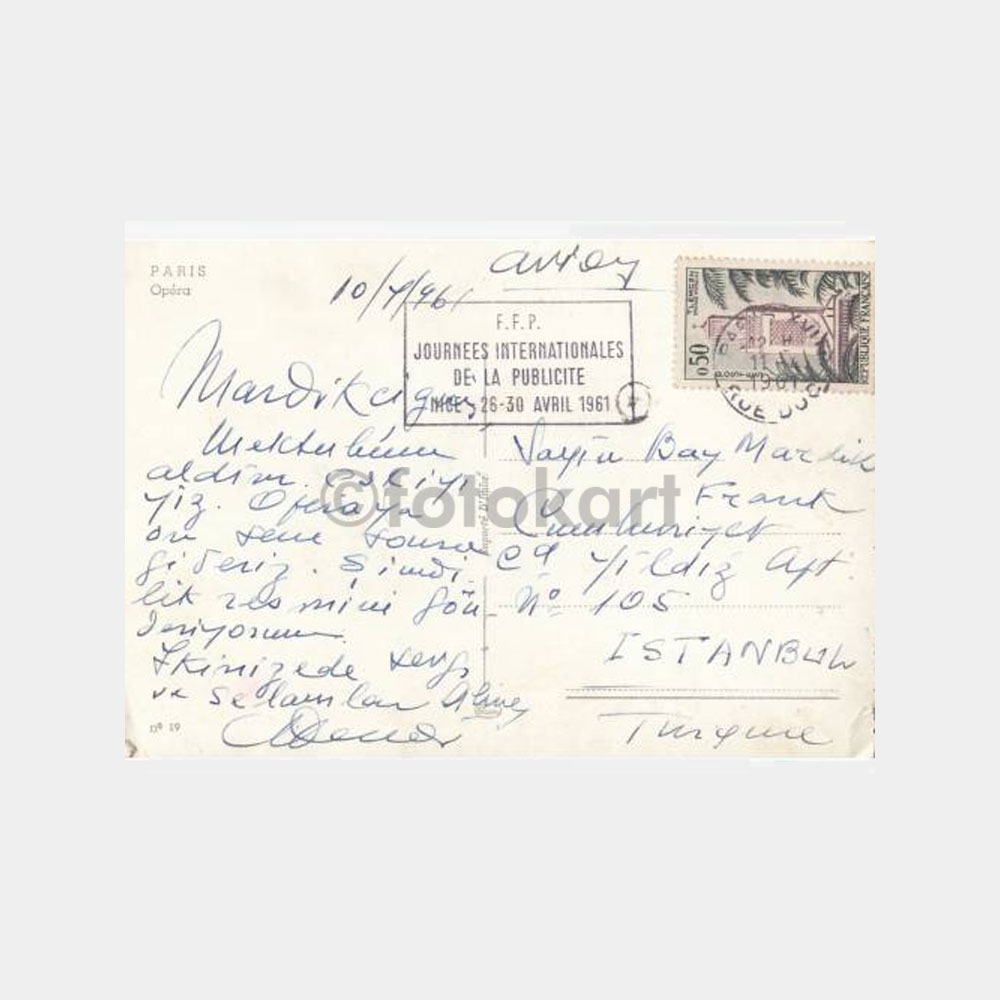 PARIS
Opéra
avion
F.F.P.
JOURNEES INTERNATIONALES
DE LA PUBLICITE
NICE 26-30 AVRIL 1961
0,50
REPUBLIQUE FRANÇAISE
1961
Mektubunu
aldım.
yiz. Operaya
on sene sonra
gideriz. Şimdi
lik resmini gön
deriyorum
İkinizede sevgi
ve selamlar
nº 19
Sayın Bay Mardik
Frank
Cumhuriyet
Cd Yıldız Apt.
Nº 105
ISTANBUL
Turquie
©fotokart